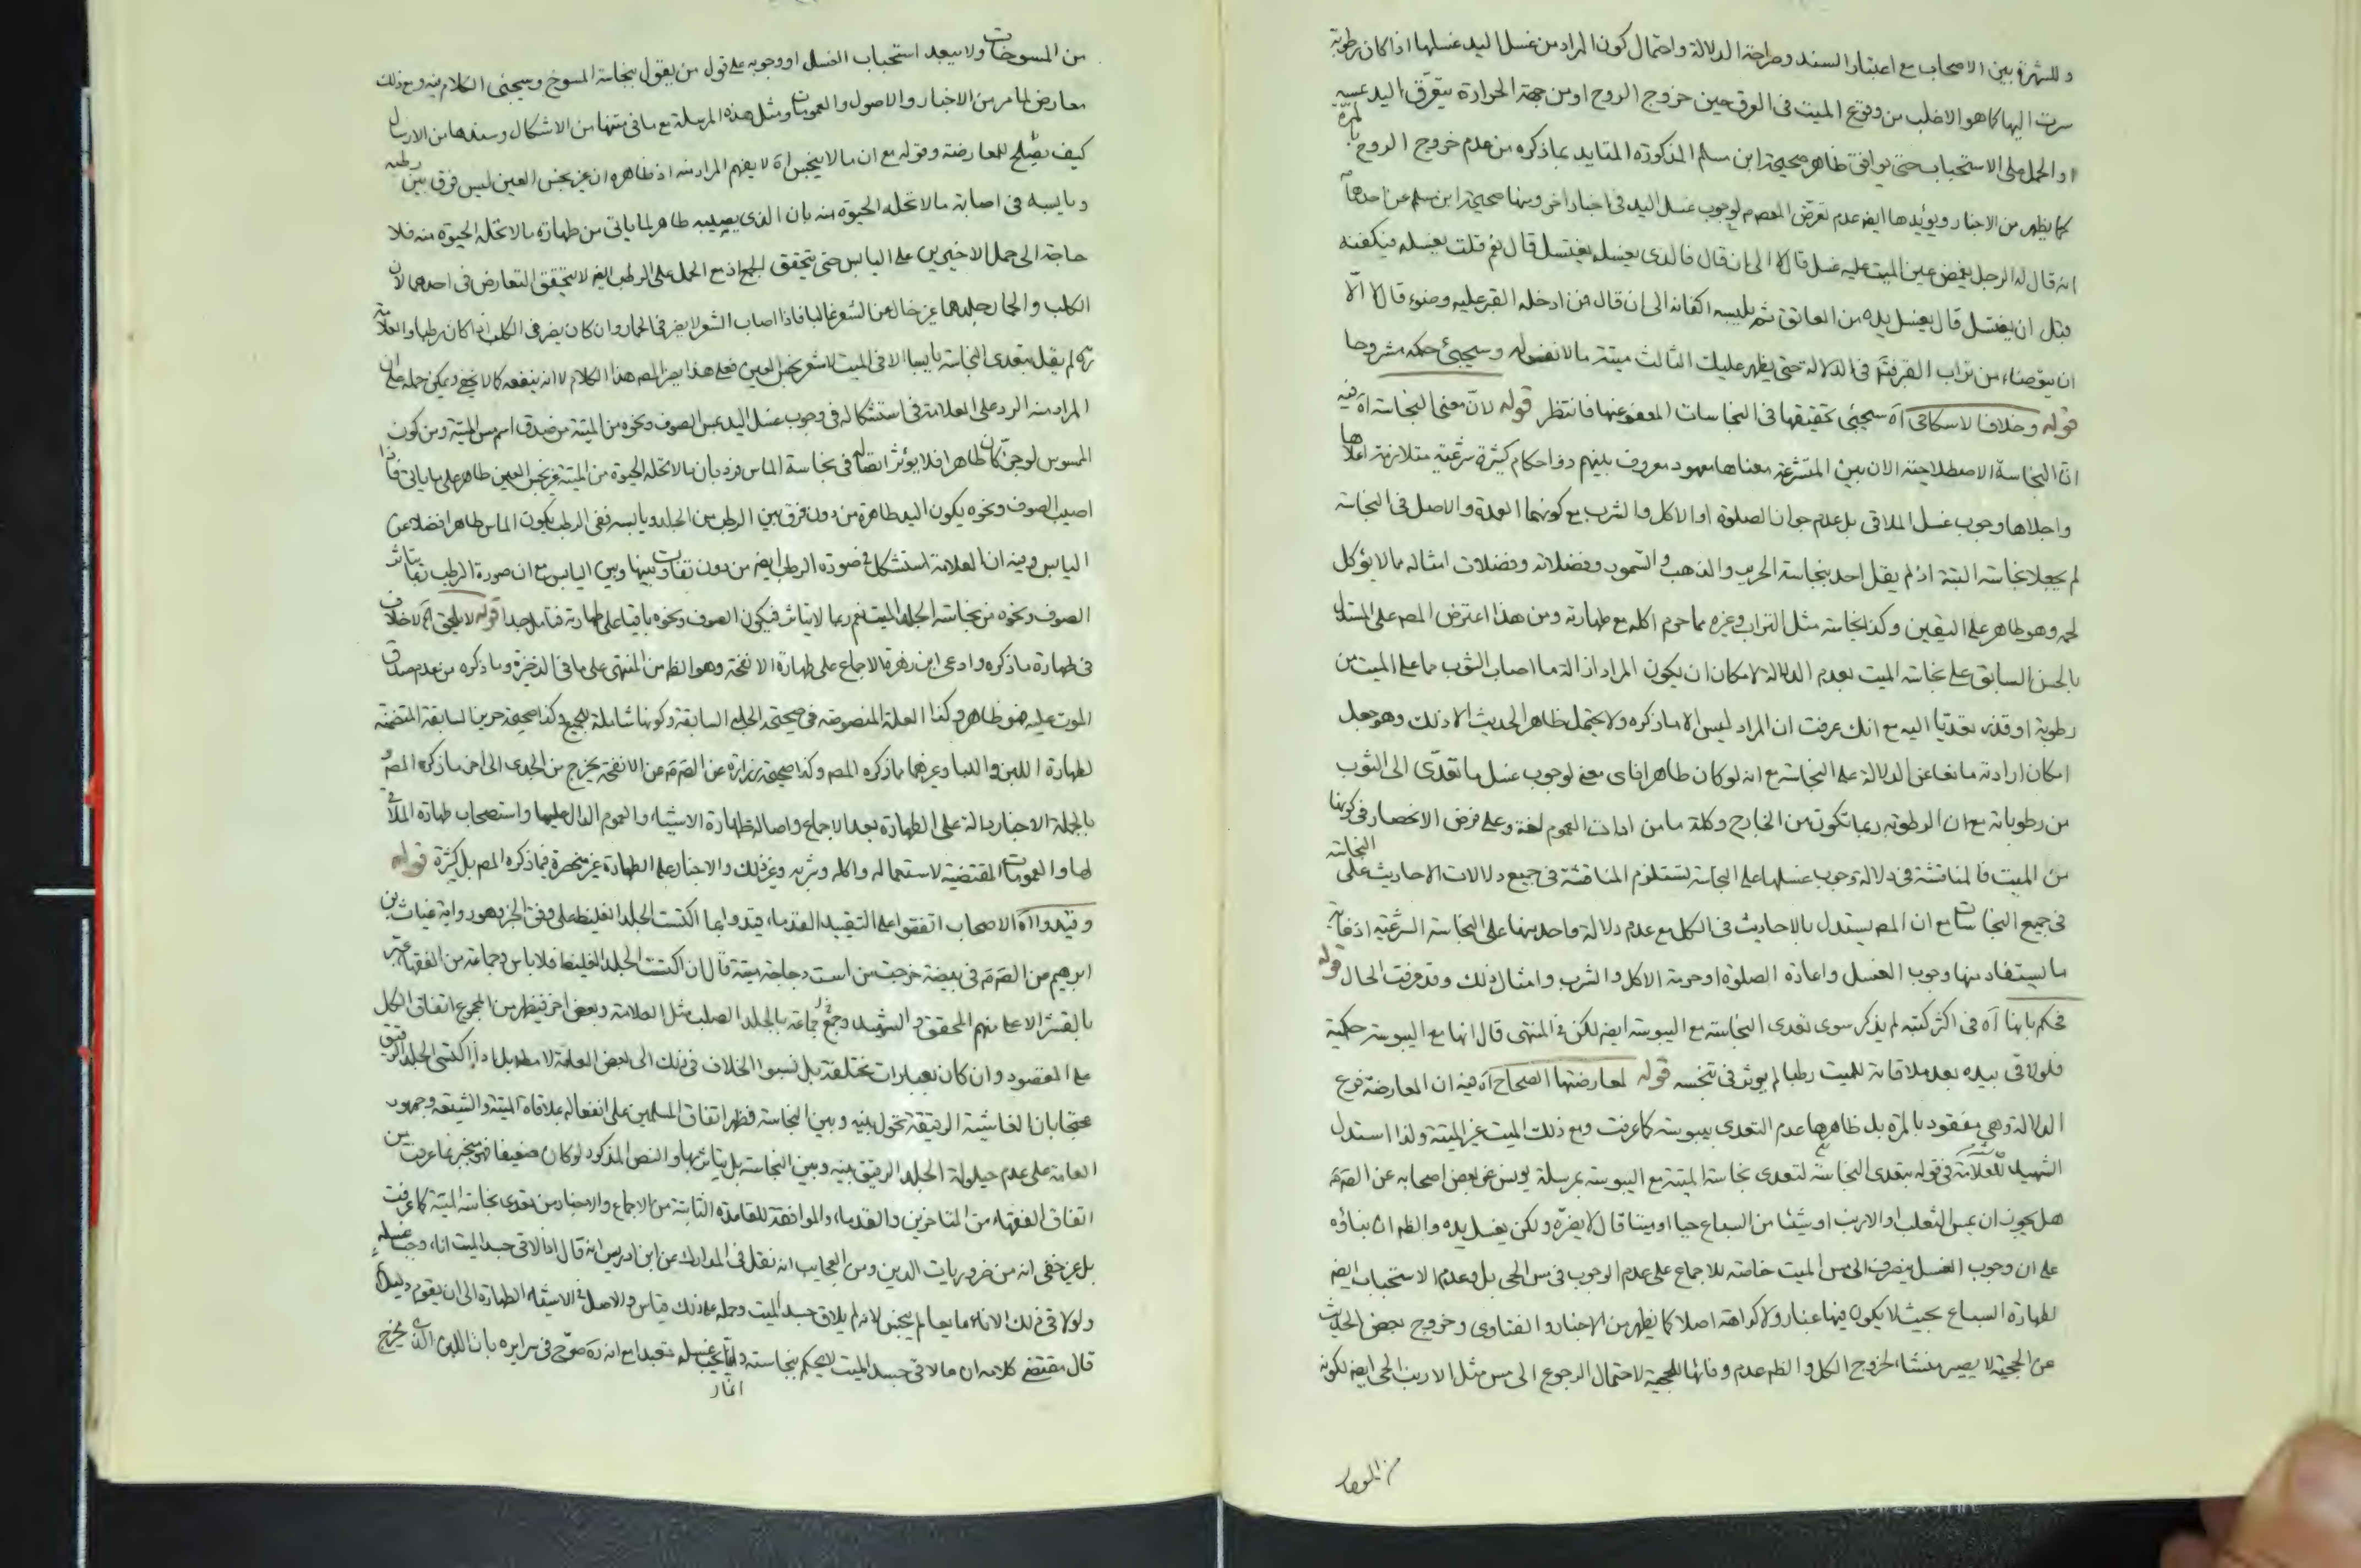 و للشهرة بين الاصحاب مع اعتبار السند وصراحة الدلالة واحتمال كون المراد من غسل اليد غسلها اذا كان برطوبة
سرت اليها كما هو الاغلب من وقوع الميت فى العرق حين خروج الروح او من جهة الحرارة يتعرّق اليد
او الحمل على الاستحباب حتى يوافق ظاهر صحيحة ابن مسلم المذكورة المتايد بماذكره من عدم خروج الروح بالمرّة
كما يظهر من الاخبار ويؤيدها ايضا عدم تعرّض المعصوم لوجوب غسل اليد فى اخبار اخر ومنها صحيحة ابن مسلم عن احدهما
انه قال له الرجل يغمض عين الميت عليه غسل قال لا الى ان قال فالذى يغسله يغتسل قال نعم قلت يغسله فيكفنه
قبل ان يغتسل قال يغسل يده من العاتق ثم يلبسه اكفانه الى ان قال فمن ادخله القبر عليه وضوء قال لا الّا
ان يتوضاء من تراب القبر فتم فى الدلالة حتى يظهر عليك الثالث ميتة مالا نفس له وسيجئ حكمه مشروحا
قوله وخلافا للاسكافى آه سيجئى تحقيقها فى النجاسات المعفو عنها فانتظر قوله لانّ معنى النجاسة آه فيه
انّ النجاسة الاصطلاحية الان بين المتشرعة معناها معهود معروف بينهم ذو احكام كثيرة شرعية متلازمة اعلاها
واجلاها وجوب غسل الملاقى بل عدم جواز الصلوة او الاكل والشرب مع كونهما العمدة والاصل فى النجاسة
لم يجعلا نجاسة البتة اذ لم يقل احد بنجاسة الحرير والذهب والسّمور وفضلاته وفضلات امثاله مالا يؤكل
لحمه وهو طاهر على اليقين وكذا نجاسة مثل التراب وغيره مما حرم اكله مع طهارته ومن هذا اعترض المصـ على المستدل
بالحسن السابق على نجاسة الميت بعدم الدلالة لامكان ان يكون المراد ازالة ما اصاب الثوب مما على الميت من
رطوبة او قذر تعديا اليه مع انك عرفت ان المراد ليس الا ماذكره ولا يحتمل ظاهر الحديث الا ذلك وهو جعل
امكان ارادته مانعا عن الدلالة على النجاسة مع انه لو كان طاهرا فاى معنى لوجوب غسل ما تعدّى الى الثوب
من رطوباته مع ان الرطوبة ربما تكون من الخارج وكلمة ما من ادات العموم لغة وعلى فرض الانحصار فى كونها
من الميت فالمناقشة فى دلالة وجوب غسلها على النجاسة تستلزم المناقشة فى جميع دلالات الاحاديث على النجاسة
فى جميع النجاسات مع ان المصـ يستدل بالاحاديث فى الكل مع عدم دلالة واحد منها على النجاسة الشرعية اذ غاية
ما يستفاد منها وجوب الغسل واعادة الصلوة او حرمة الاكل والشرب وامثال ذلك وقد عرفت الحال قوله
فحكم بانها آه فى اكثر كتبه لم يذكر سوى تعدى النجاسة مع اليبوسة ايضا لكن فى المنتهى قال انها مع اليبوسة حكمية
فلو لاقى بيده بعد ملاقاته للميت رطبا لم يوثر فى تنجسه قوله لمعارضتها الصحاح آه فيه ان المعارضة فرع
الدلالة وهى مفقود بالمرّة بل ظاهرها عدم التعدى بيبوسة كما عرفت ومع ذلك الميت غير الميتة ولذا استدل
الشهيد للعلّامة فى قوله بتعدى النجاسة لتعدى نجاسة الميتة مع اليبوسة بمرسلة يونس عن بعض اصحابه عن الصـ
هل يجوز ان يمس الثعلب او الارنب او شيئا من السباع حيا او ميتا قال لا يضرّه ولكن يغسل يده والظـ ان بناؤه
على ان وجوب الغسل ينصرف الى مس الميت خاصة للاجماع على عدم الوجوب فى مس الحى بل وعدم الاستحباب ايضا
لطهارة السباع بحيث لا يكون فيها غبار ولا كراهة اصلا كما يظهر من الاخبار والفتاوى وخروج بعض الحديث
عن الحجية لا يصير منشاء لخروج الكل والظـ عدم وفائها للحجية لاحتمال الرجوع الى مس مثل الارنب الحى ايضا لكونه
من المسوخات ولا يبعد استحباب الغسل او وجوبه على قول من يقول بنجاسة المسوخ وسيجئى الكلام فيه ومع ذلك
معارض لما مر من الاخبار والاصول والعمومات ومثل هذه المرسلة مع ما فى متنها من الاشكال وسندها من الارسال
كيف يصلح للمعارضة وقوله مع ان مالا ينجس آه لا يفهم المراد منه اذ ظاهره ان غير نجس العين ليس فرق بين رطبه
ويابسه فى اصابة مالا تحله الحيوة منه بان الذى يصيبه طاهر لما ياتى من طهارة مالا تحله الحيوة منه فلا
حاجة الى حمل الاخيرين على اليابس حتى يتحقق الجمع اذ مع الحمل على الرطب ايضا لا يتحقق التعارض فى احدهما لان
الكلب والحمار جلدهما غير خال عن الشعر غالبا فاذا اصاب الشعر لا يضر فى الحمار وان كان يضر فى الكلب اذا كان رطبا والعلّامة
ره لم يقل بتعدى النجاسة يابسا الا فى الميت لا شعر نجس العين فعلى هذا يضر المصـ هذا الكلام لا انه ينفعه كما لا يخفى ويمكن حمله على ان
المراد منه الرد على العلامة فى استشكاله فى وجوب غسل اليد بمس الصوف ونحوه من الميتة من صدق اسم مس الميتة ومن كون
الممسوس لو جزّ كان طاهرا فلا يؤثر اتصاله فى نجاسة الماس فرد بان مالا تحله الحيوة من الميتة غير نجس العين طاهر على ما ياتى فاذا
اصيب الصوف ونحوه يكون اليد طاهرة من دون فرق بين الرطب من الجلد ويابسه ففى الرطب يكون الماس طاهرا فضلا عن
اليابس وفيه ان العلامة استشكل فى صورة الرطب ايضا من دون تفاوت بينها وبين اليابس مع ان صورة الرطب ربما يتاثر
الصوف ونحوه من نجاسة الجلد الميت نعم ربما لا يتاثر فيكون الصوف ونحوه باقيا على طهارته فتامل جدا قوله لا يلحق آه لا خلاف
فى طهارة ماذكره وادعى ابن زهرة الاجماع على طهارة الانفحة وهو الظـ من المنتهى على ما فى الذخيرة وماذكره من عدم صدق
الموت عليه فهو ظاهر وكذا العلة المنصوصة فى صحيحة الحلبى السابقة وكونها شاملة للجميع وكذا صحيحة حريز السابقة المتضمنة
لطهارة اللبن واللبا وغيرهما مما ذكره المصـ وكذا صحيحة زرارة عن الصـ عن الانفحة يخرج من الجدى الى اخر ما ذكره المصـ
بالجملة الاخبار دالة على الطهارة بعد الاجماع واصالة طهارة الاشياء والعموم الدال عليها واستصحاب طهارة الملاقى
لها والعمومات المقتضية لاستعماله واكله وشربه وغير ذلك والاخبار على الطهارة غير منحصرة فيما ذكره المصـ بل كثيرة قوله
وقيدوا آه الاصحاب اتفقوا على التقييد القدماء قيدوا بما اكتست الجلد الغليظ على وفق الخبر وهو رواية غياث بن
ابرهيم عن الصـ فى بيضة خرجت من است دجاجة ميتة قال ان اكتست الجلد الغليظ فلا باس وجماعة من الفقهاء عبّر
بالقشر الاعلى منهم المحقق والشهيد وجمع جماعة بالجلد الصلب مثل العلامة وبعض اخر فيظهر من المجموع اتفاق الكل
على المقصود وان كان بعبارات مختلفة بل نسبوا الخلاف فى ذلك الى بعض العامّة لا مطـ بل اذا اكتسى الجلد الرقيق
محتجا بان الغاشية الرقيقة تحول بينه وبين النجاسة فظهر اتفاق المسلمين على انفعاله بملاقاة الميتة والشيعة وجمهور
العامة على عدم حيلولة الجلد الرقيق بينه وبين النجاسة بل يتاثر بها والنص المذكور لو كان ضعيفا فهو منجبر بما عرفت من
اتفاق الفقهاء من المتاخرين والقدماء والموافقة للقاعدة الثابتة من الاجماع والاخبار من تعدى نجاسة الميتة كما عرفت
بل غير خفى انه من ضروريات الدين ومن العجايب انه نقل فى المدارك عن ابن ادريس انه قال اذا لاقى جسد الميت اناء وجب غسله
ولو لاقى ذلك الاناء مايعا لم ينجس لانه لم يلاق جسد الميت وحمله على ذلك قياس والاصل فى الاشياء الطهارة الى ان يقوم دليل
قال مقتضى كلامه ان ما لاقى جسد الميت لا يحكم بنجاسته وانما يجب غسله تعبدا مع انه ره صرّح فى سرايره بان اللبن الذى يخرج